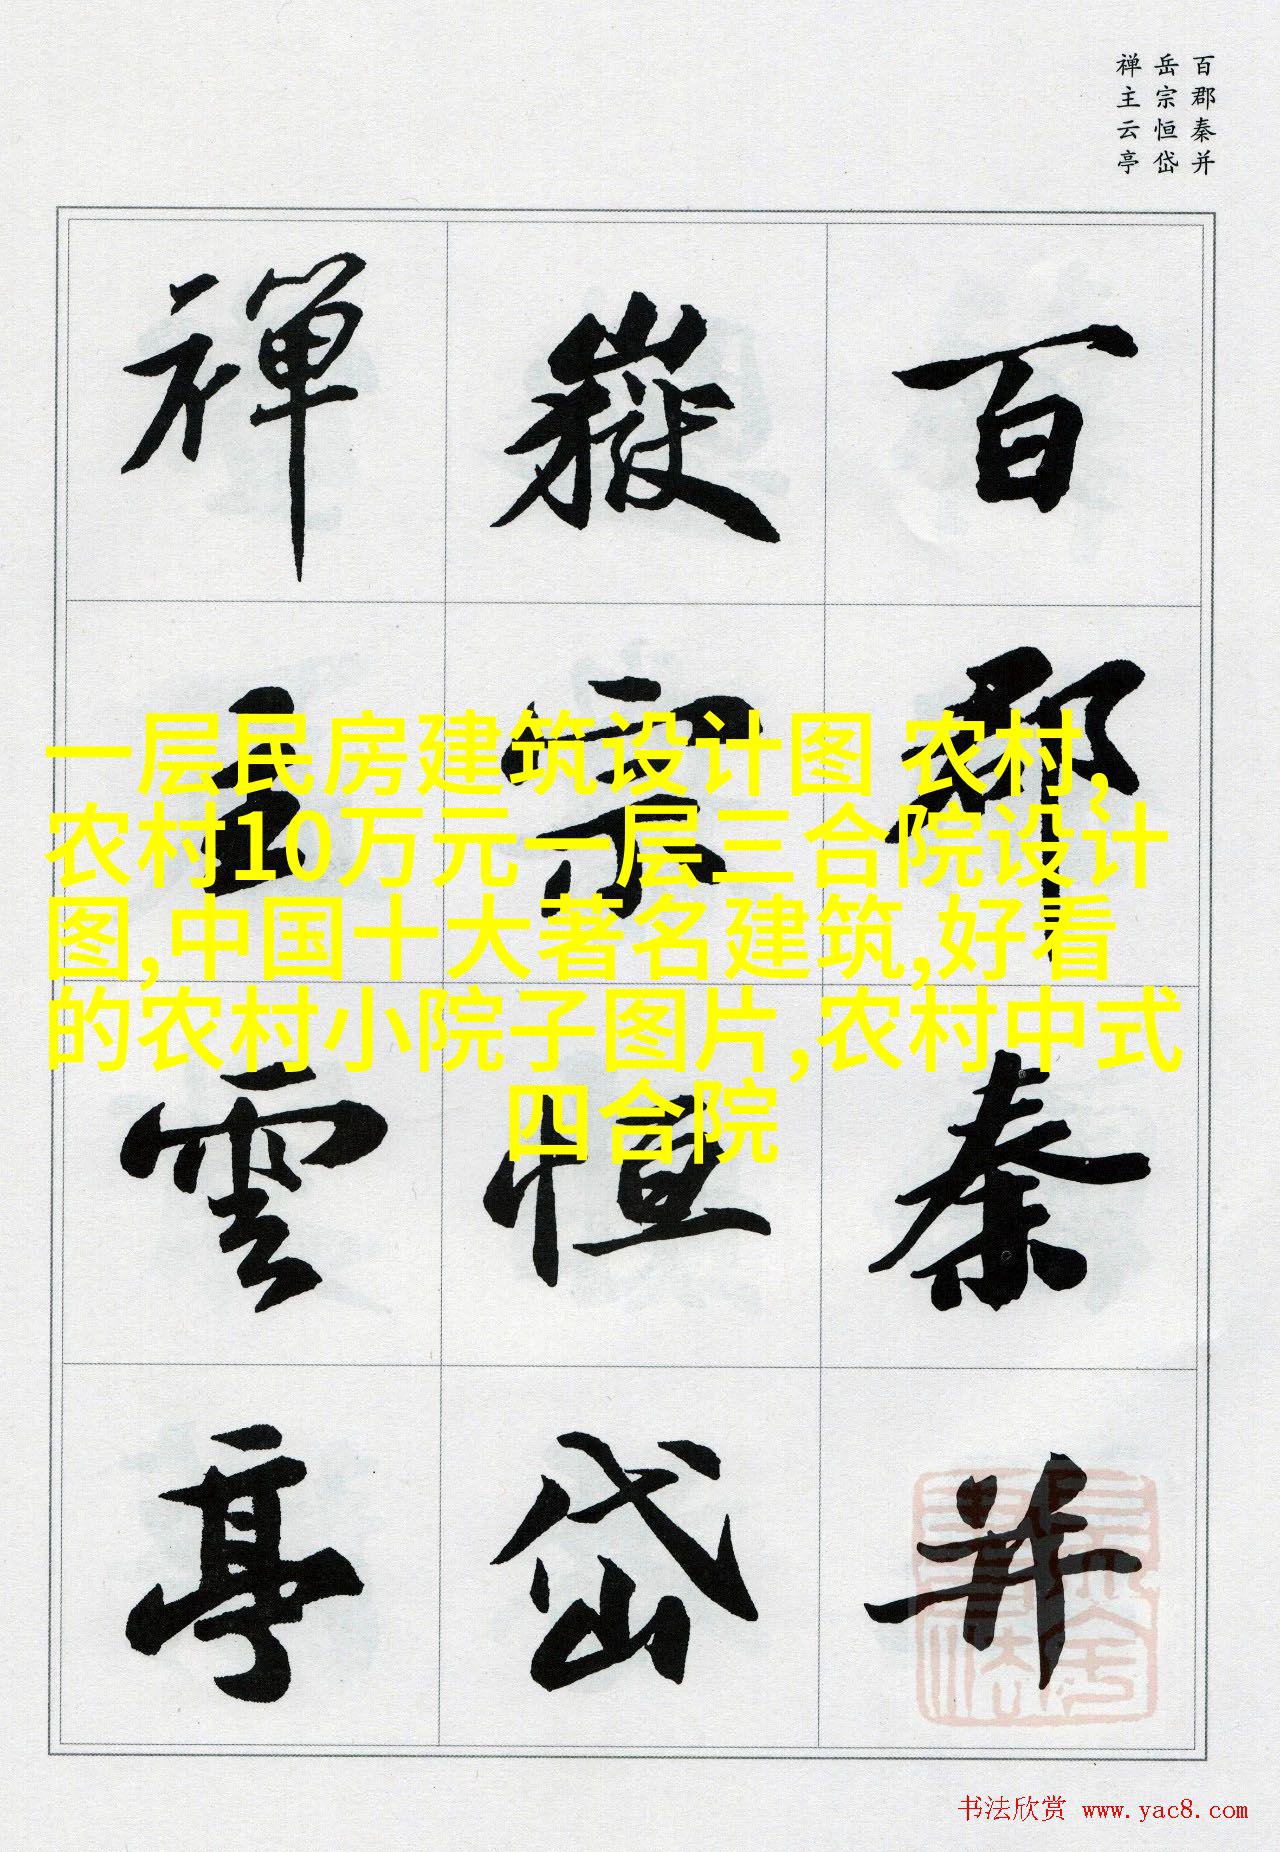 百郡秦并
岳宗恒岱
禅主云亭
百郡秦并
嶽宗恒岱
禪主雲亭
一层民房建筑设计图 农村,
农村10万元一层三合院设计
图,中国十大著名建筑,好看
的农村小院子图片,农村中式
四合院
书法欣赏 www.yac8.com